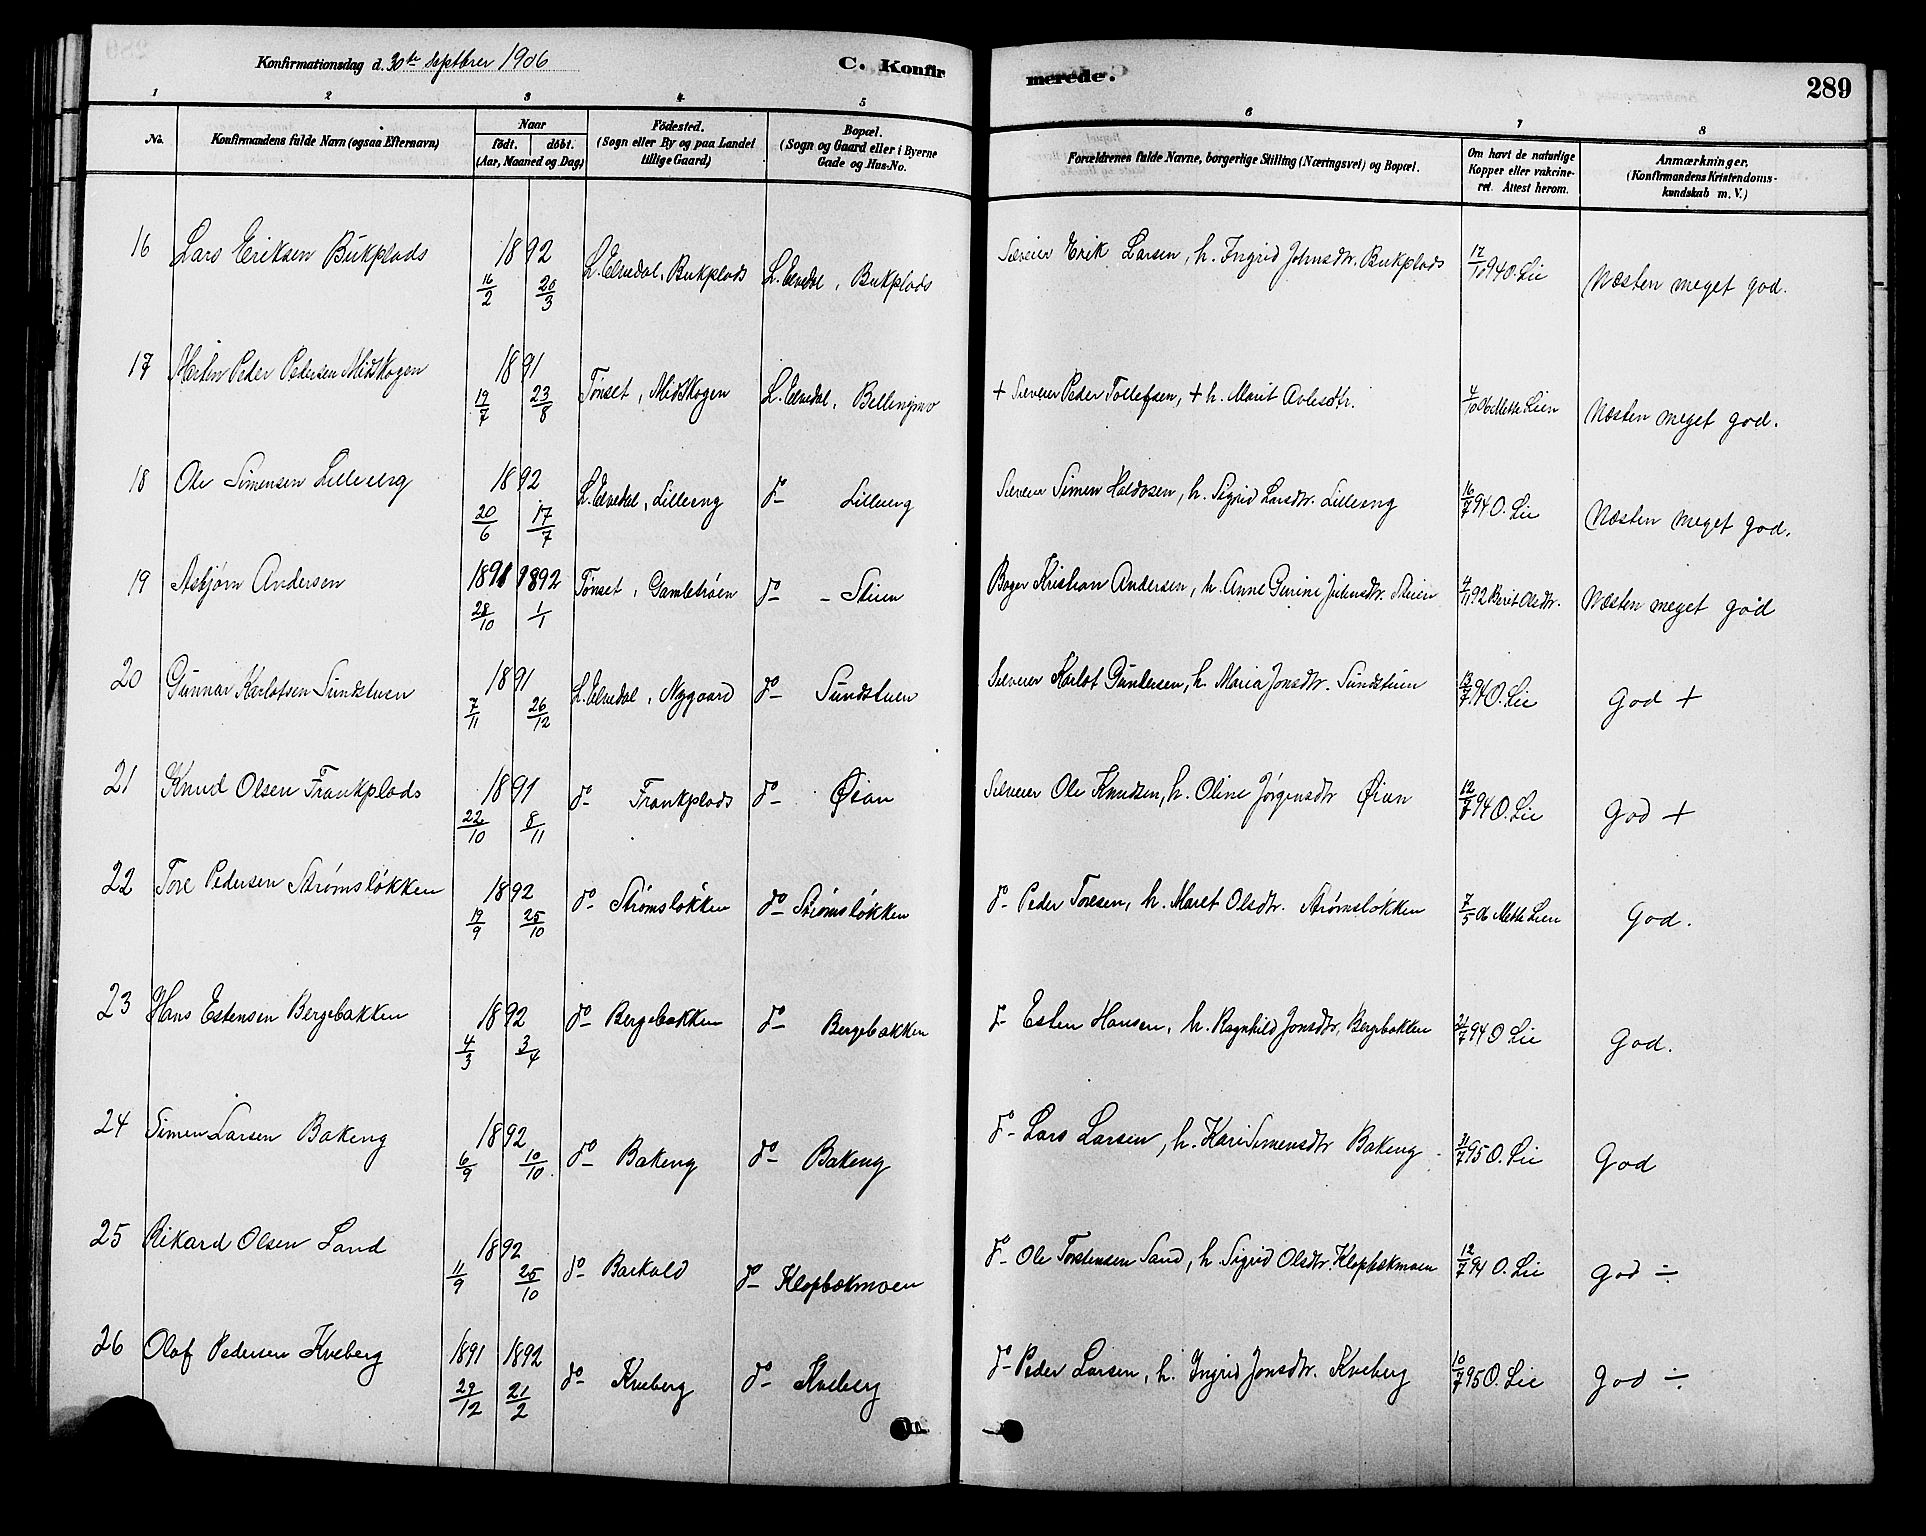 Konfirmationsdag d. 30te Septbrer 1906
C. Konfirmerede.
289
1 2 3 4 5 6 7 8
No.
Konfirmandens fulde Navn (ogsaa Efternavn)
Naar
födt. döbt.
(Aar, Maaned og Dag)
Födested.
(Sogn eller By og paa Landet
tillige Gaard)
Bopæl.
(Sogn og Gaard eller i Byerne
Gade og Hus-No.
Forældrenes fulde Navne, borgerlige Stilling (Næringsvei) og Bopæl.
Om havt de naturlige
Kopper eller vakcine-
ret. Attest herom.
Anmærkninger.
(Konfirmandens Kristendoms-
kundskab m. V.)
16 Lars Eriksen Bukplads 1892 16/2 20/3 L. Elvedal, Bukplads L. Elvedal, Bukplads Selveier Erik Larsen, h. Ingrid Johnsdtr. Bukplads 12/10 94 O. Lie Næsten meget god.
17 Morten Peder Pedersen Midtskogen 1891 19/7 23/8 Tønset, Midtskogen L. Elvedal, Bellingmo + Selveier Peder Tollefsen, + h. Marit Avlesdtr. 4/10 06 Mette Lien Næsten meget god.
18 Ole Simensen Lilleeng 1892 20/6 17/7 L. Elvedal, Lilleeng do- Lilleeng Selveier Simen Haldosen, h. Sigrid Larsdtr. Lilleeng 16/7 94 O. Lie Næsten meget god.
19 Asbjørn Andersen 1891 1892 28/10 1/1 Tønset, Gamletrøen do- - Stuen Bager Kristian Andersen, h. Anne Gurine Juliusdtr. Steien 4/11 92 Berit Olsdtr. Næsten meget god
20 Gunnar Karlotsen Sundstuen 1891 7/11 26/12 L. Elvedal, Nygaard do- Sundstuen Selveier Karlot Gundersen, h. Maria Jonsdtr. Sundstuen 13/7 94 O. Lie God +
21 Knud Olsen Frankplads 1891 22/10 8/11 do- Frankplads do- Øian Selveier Ole Knudsen, h. Oline Jørgensdtr Øian 12/7 94 O. Lie God +
22 Tore Pedersen Strømsløkken 1892 19/9 25/10 do- Strømsløkken do- Strømsløkken do- Peder Toresen, h. Maret Olsdtr. Strømsløkken 7/5 06 Mette Lien God.
23 Hans Estensen Bergebakken 1892 4/3 3/4 do- Bergebakken do- Bergebakken do- Esten Hansen, h. Ragnhild Jonsdtr, Bergebakken 21/7 94 O Lie God.
24 Simen Larsen Bakeng 1892 6/9 10/10 do- Bakeng do- Bakeng do- Lars Larsen, h. Kari Simensdtr Bakeng 11/7 95 O. Lie God
25 Rikard Olsen Sand 1892 11/9 25/10 do- Barkald do- Klopbækmoen do- Ole Torstensen Sand, h. Sigrid Olsdtr. Klopbækmoen 12/7 94 O. Lie God ÷
26 Olaf Pedersen Kveberg 1891 1892 29/12 21/2 do- Kveberg do- Kveberg do- Peder Larsen, h. Ingrid Jonsdtr. Kveberg 10/7 95 O. Lie God ÷